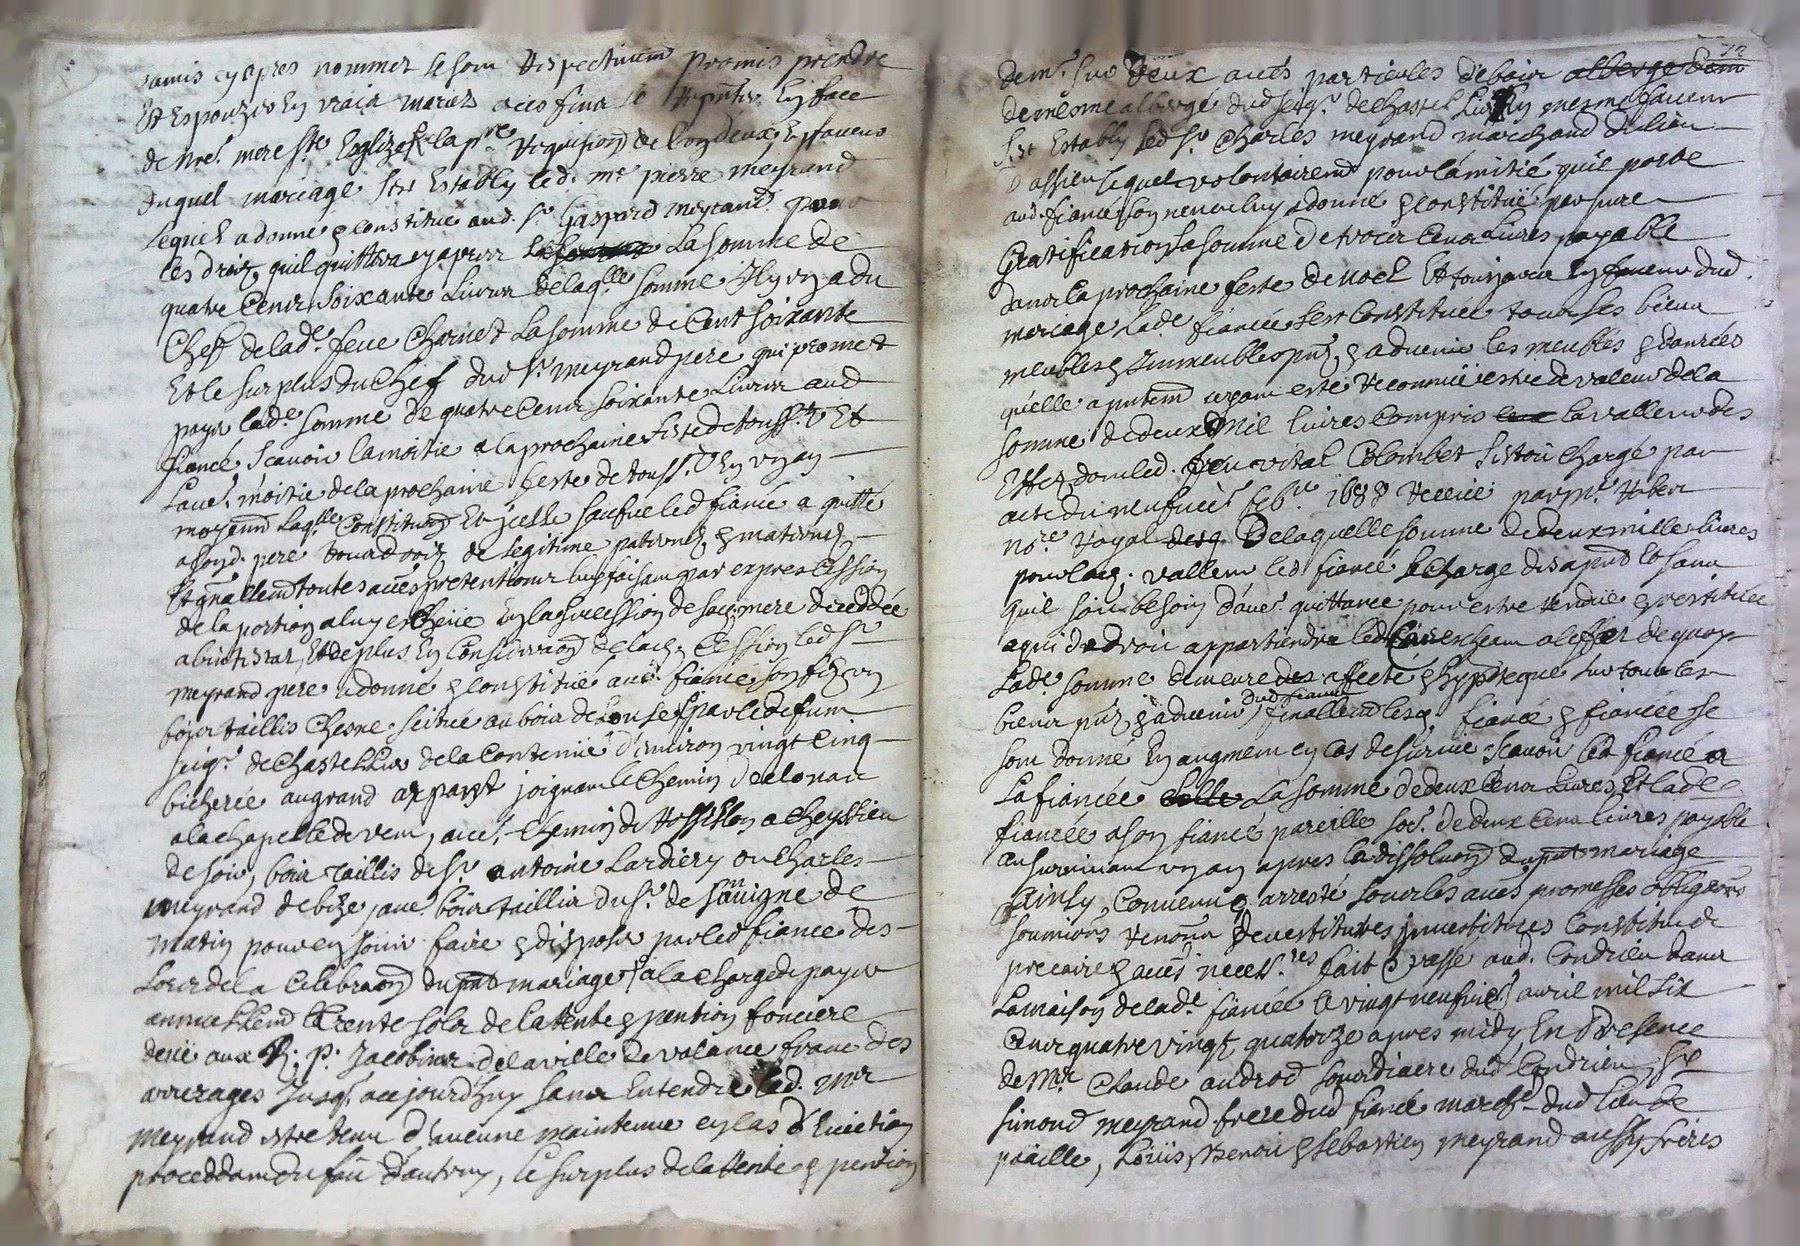 amis cy apres nommez se sont respectivem.t promis prendre
Et Espouzer En vraix mariez a ces fins se En face
de n.re mere s.te Esglize a la p.re requision de l'on deux, En faveur
duquel mariage s'est Estably led. m.e pierre meyrand
Lequel a donné & constitue aud. s.r Gaspard meyrand pour
les droiz quil quittera cyapres la somme de
quatre Cens soixante Livres de laq.lle somme Il y en a du
Chef de lad.e feue Charnet La somme de Cent soixante
Et le surplus du Chef dud s.r meyrand pere qui promet
payer lad.e somme de quatre Cens soixante Livres aud
fiancé scavoir la moitie a la prochaine feste de touss.ts Et
l'au.e moitié de la prochaine feste de touss.ts En un an
moyenn.t laq.lle Constitu.on Et jcelle sauf led fiancé a quitté
a son d. pere tous droiz de legitime paternelz & maternelz
Et gnallem.t toutes au.es pretentions luy faisant par expres Cession
de la portion a luy escheüe En la succession de sad. mere decedée
abintestat, Et de plus En Considera.on de lad. Cession led s.r
meyrand pere a donné & constitué aud. fiancé son filz un
bois taillis Chesne scitué au bois de par le defunt
seig.r de Chastellus de la Contenüe d'environ vingt Cinq
bicherée augrand arpant joignant le Chemin de
a la chapelle de vent, au.e Chemin de a cheyssieu
de soir, bois taillis de s.r antoine Lardiery ou Charles
meyrand de bize, au.e bois taillis du s.r de Savigne de
matin pour en jouir faire & disposer par led fiancé des
Lors de la Celebra.on du pnt mariage, a la charge de payer
annuellem.t la rente solz de la rente & pention fonciere
deüe aux R. P. Jacobins de la ville de valance franc des
arrerages jusq. a ce jourd'huy sans Entendre led. m.r
meyrand estre tenu d'aucune maintenue en Cas d'Eviction
proceddant du fait d'autruy, le surplus de la rente & pention
72
dem.t sur deux au.es particules de bois albergé dom
de mesme albergé dud seig.r de chastellus En mesme faveur
s'est Estably led s.r Charles meyrand marchand du lieu
D'assieu lequel volontairem.t pour l'amitié quil porte
aud. fiancé son neveu luy a donné & constitué par pure
Gratification La somme de trois Cens Livres payable
dans la prochaine feste de noel Et tousjours En faveur dud.
mariage lad.e fiancée s'est Constituée tous ses biens
meubles & Immeubles pnz & advenir les meubles & danrées
qu'elle a pntem.t ayant esté reconnüe estre de valeur de la
somme de deux Mil livres Compris la valleur des
Effetz dont led. feu vital Colombet s'estoit chargé par
acte du neufvie.e feb.er 1688 receüe par m.e
no.re Royal De laquelle somme de deux mille livres
pour lad. valleur led fiancé se Charge des apnt Et sans
quil soit besoin d'au.e quittance pour estre rendüe & restituée
a qui de droit appartiendra led Cas escheant a l'effet de quoy
Lad.e somme demeure affecté & hypoteque sur tous les
biens pnz & advenir dud fiancé finallem.t lesq. fiancé & fiancée se
sont donné En augment en Cas de survie scavoir led fiancé a
La fiancée La somme de deux Cens Livres Et lad.e
fiancée a son fiancé pareille so.e de deux Cens livres payable
au survivant un an apres la dissolu.on du pnt mariage
Ainsy Convenu & arresté sour les au.es promesses obliga.ons
soumi.ons renon.ons devestitures jnvestitures Constitut de
precaire & au.es necess.res fait & passé aud. Condrieu dans
La maison de lad.e fiancée le vingt neufvie.e avril mil six
Cens quatre vingt quatorze apres midy En Presence
de M.re Claude androd sourdiacre dud Condrieu s.r
simond meyrand frere dud fiancé march.d dud lieu de
paille, Loüis, benoit & sebastien meyrand aussy freres